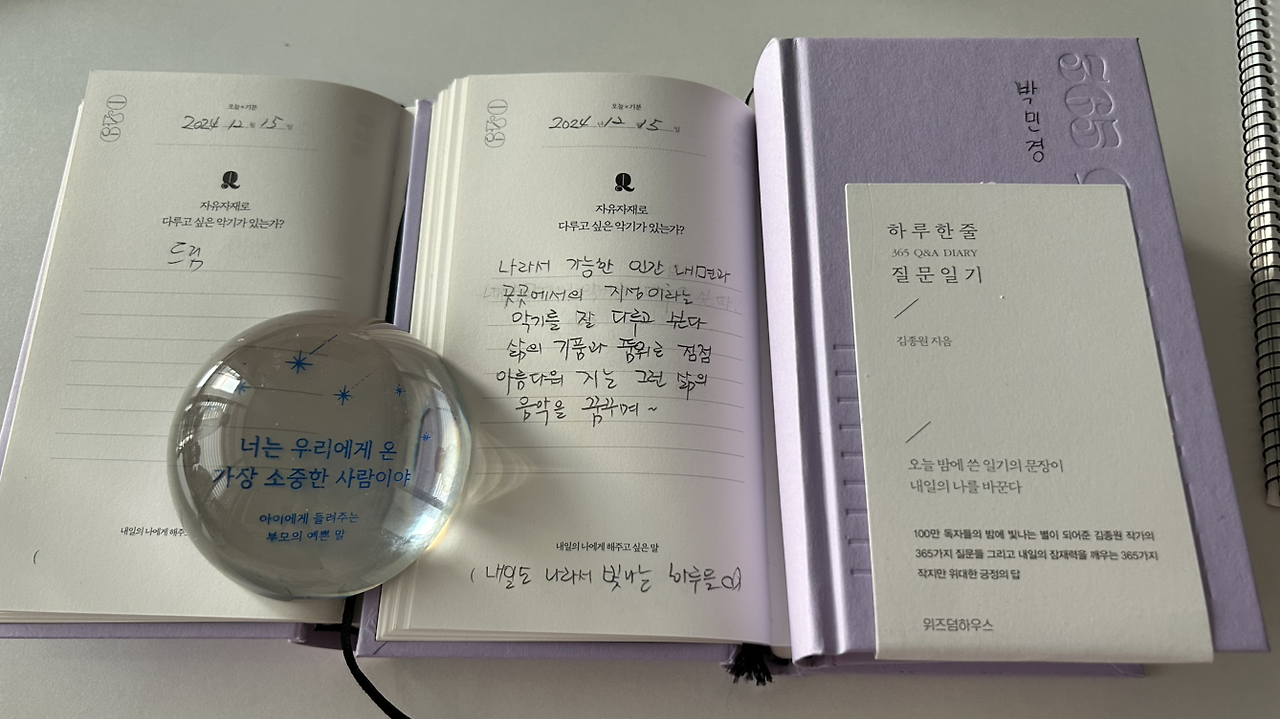 오늘×기분
2024 12 월 15 일
Q
자유자재로
다루고 싶은 악기가 있는가?
드럼
너는 우리에게 온
가장 소중한 사람이야
아이에게 들려주는
부모의 예쁜 말
내일의 나에게 해주
(
오늘×기분
2024 년 12 월 15 일
Q
자유자재로
다루고 싶은 악기가 있는가?
나라서 가능한 인간 내면과
곳곳에서의 지성이라는
악기를 잘 다루고 싶다
삶의 기품과 품위로 점점
아름다워 지는 그런 삶의
음악을 꿈꾸며~
내일의 나에게 해주고 싶은 말
( 내일도 나라서 빛나는 하루를
365
박민경
하루한줄
365 Q&A DIARY
질문일기
김종원 지음
오늘 밤에 쓴 일기의 문장이
내일의 나를 바꾼다
100만 독자들의 밤에 빛나는 별이 되어준 김종원 작가의
365가지 질문들 그리고 내일의 잠재력을 깨우는 365가지
작지만 위대한 긍정의 답
위즈덤하우스